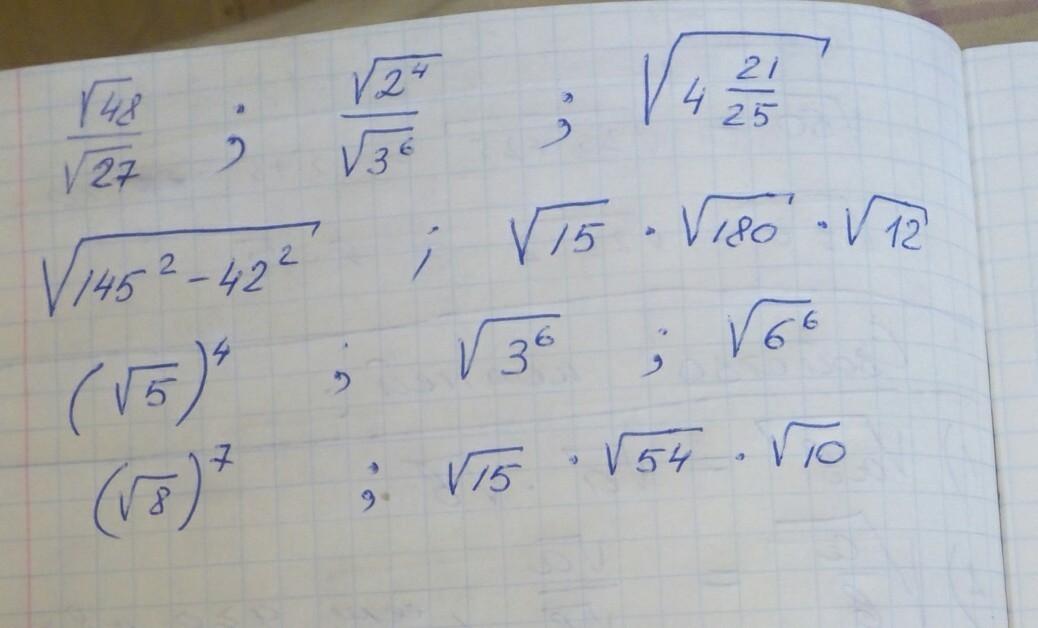 √48/√27 ; √2⁴/√3⁶ ; √(4 21/25)
√(145² - 42²) ; √15 · √180 · √12
(√5)⁴ ; √3⁶ ; √6⁶
(√8)⁷ ; √15 · √54 · √10